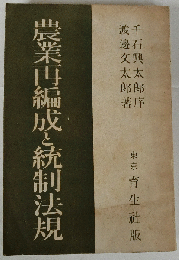 千石興太郎序
渡邊文太郎著
農業再編成と統制法規
東京 育生社版